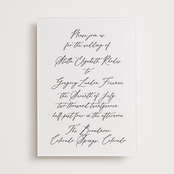 Please join us
for the wedding of
Elizabeth
to
Gregory Landon
the of July
two thousand
half past four in the afternoon
The Broadmoor
Colorado Springs, Colorado